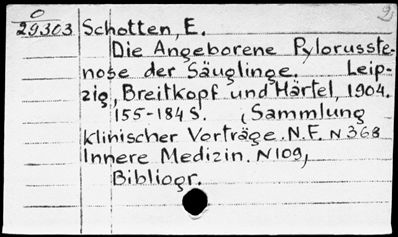 0
29303 Schotten, E.
Die Angeborene Pylorusste-
nose der Säuglinge. Leip-
zig, Breitkopf und Härtel, 1904.
155-184 S. (Sammlung
klinischer Vorträge. N.F. N 368
Innere Medizin. N109,
Bibliogr.